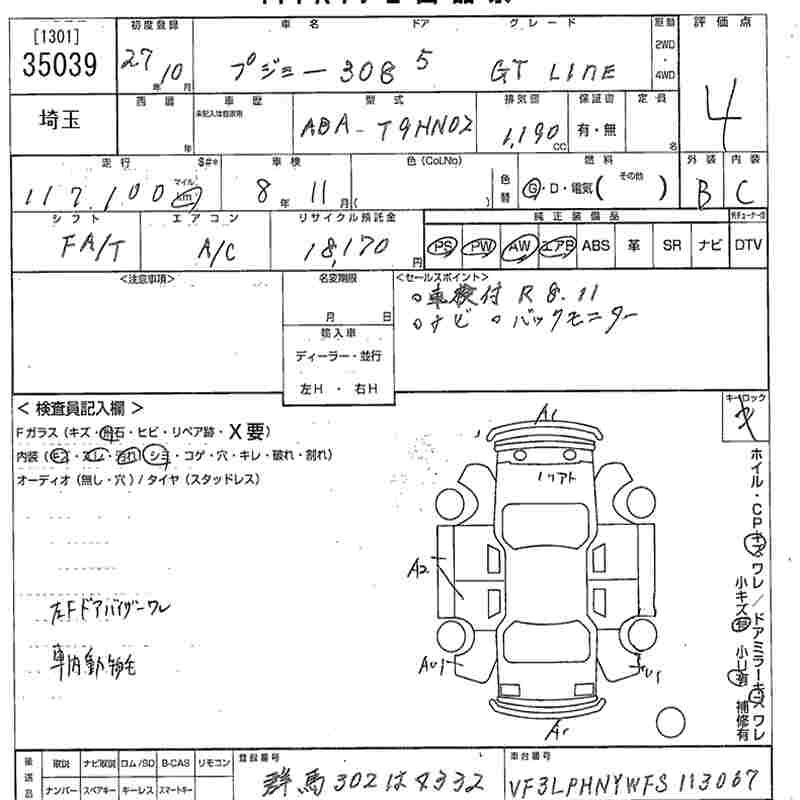 [1301]
35039
初度登録
27年 10月
車名
プジョー 308
ドア
5
グレード
GT LINE
駆動
2WD
・
4WD
評価点
4
埼玉
西暦
年
車歴
未記入は自家用
型式
ABA-T9HN02
排気量
1,190 CC
保証書
有・無
定員
名
走行
$#*
117,100
マイル
km
車検
8年 11月
色(CoLNo)
( )
色替
燃料
G・D・電気( その他 )
外装
B
内装
C
シフト
FA/T
エアコン
A/C
リサイクル預託金
18,170円
純正装備品
PS PW AW エアB ABS 革 SR ナビ DTV
<注意事項>
名変期限
月 日
輸入車
ディーラー・並行
左H ・ 右H
<セールスポイント>
○車検付 R 8.11
○ナビ ○バックモニター
<検査員記入欄>
Fガラス(キズ・飛石・ヒビ・リペア跡・X要)
内装(キズ・スレ・汚れ・シミ・コゲ・穴・キレ・破れ・割れ)
オーディオ(無し・穴)/タイヤ(スタッドレス)
キーロック
ホイル・CPキズワレ/ドアミラーキズワレ
小キズ有 小U有 補修有
A1
A2
AU1
A1
左Fドアバイザーワレ
車内動物毛
後送品
取説 ナビ取説 ロム/SD B-CAS リモコン
ナンバー スペアキー キーレス スマートキー
登録番号
群馬302は4332
車台番号
VF3LPHNYWFS113067